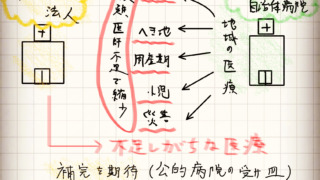 法人
医師不足で縮少
へき地
周産期
小児
災害
地域の医療
自治体病院
不足しがちな医療
補完を期待(公的病院の受け皿)